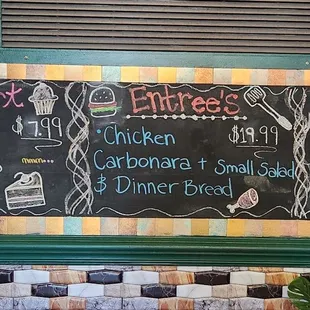 $7.99
mmm...
Entree's
$19.99
• Chicken
Carbonara + Small Salad
$ Dinner Bread